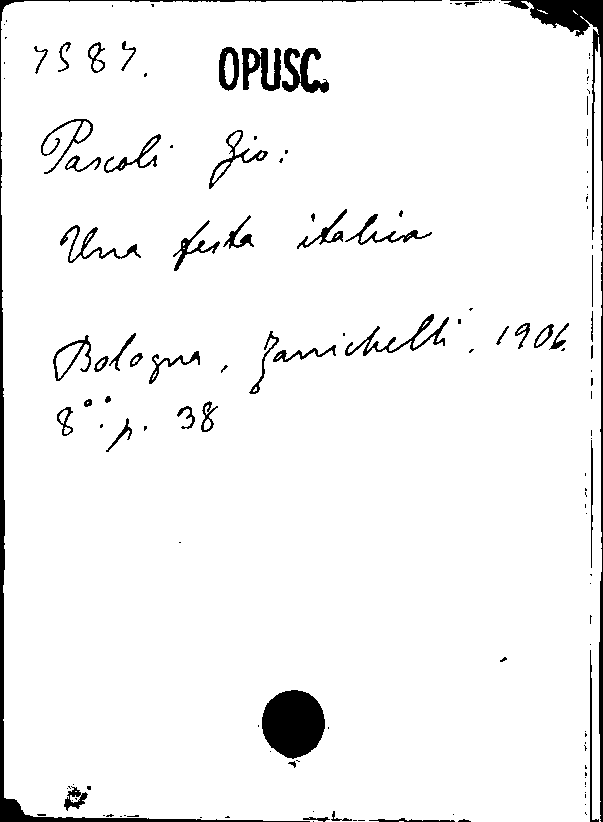 7587. OPUSC.
Pascoli Gio:
Una festa italica
Bologna, Zanichelli. 1906.
8°. p. 38